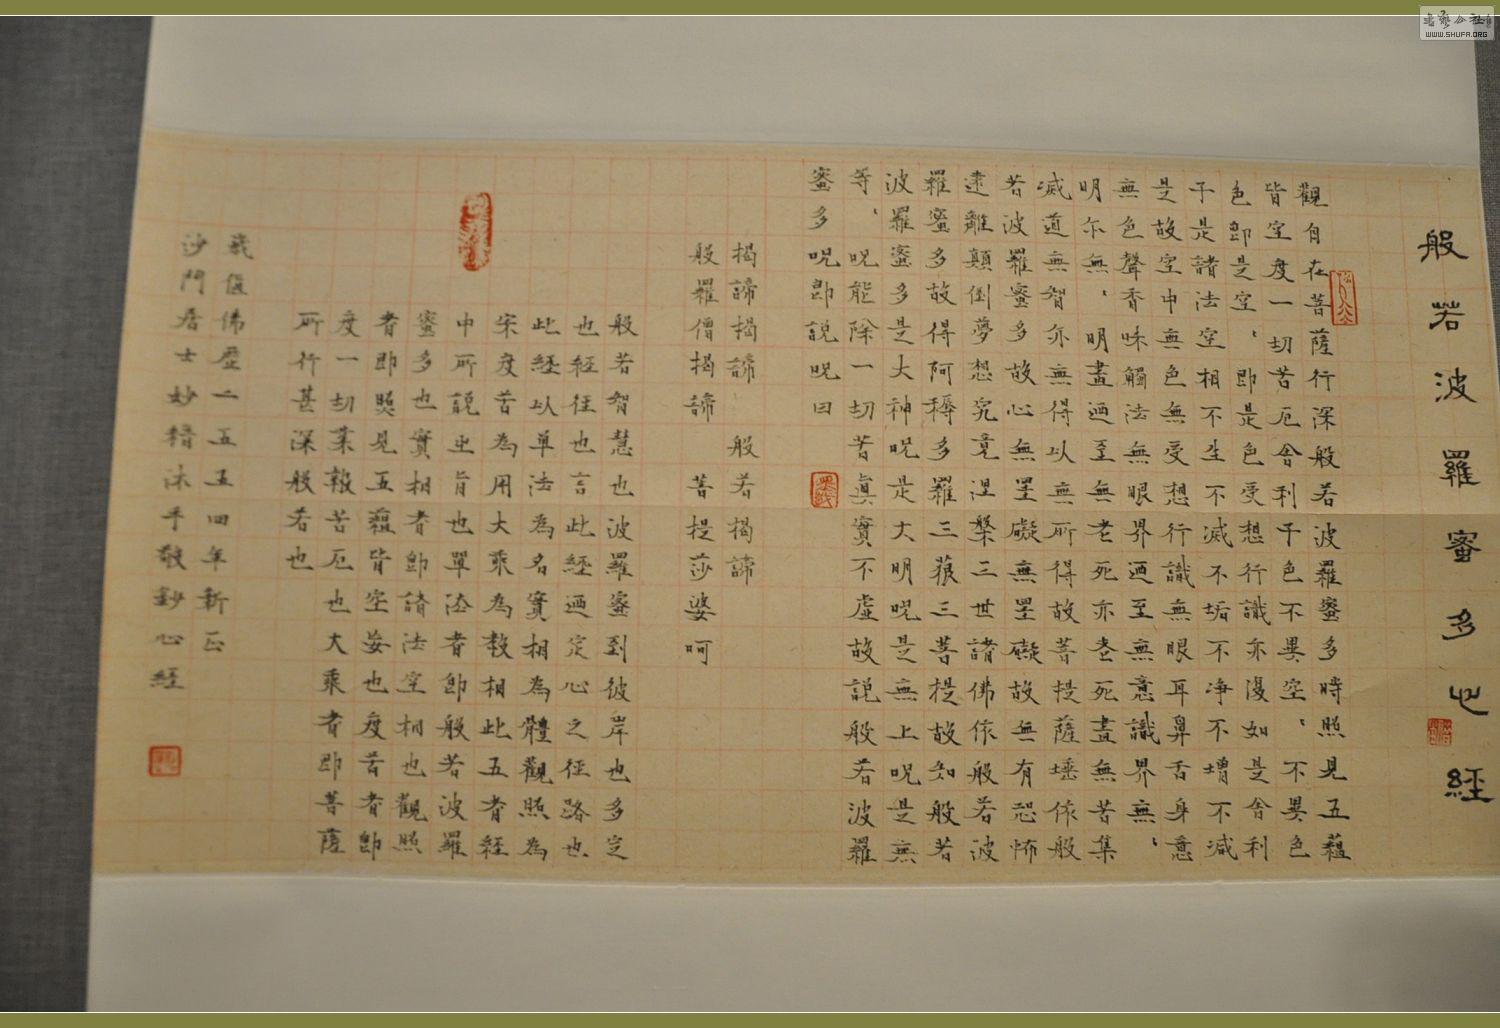 般若波羅蜜多心經
觀自在菩薩行深般若波羅蜜多時照見五蘊
皆空度一切苦厄舍利子色不異空、不異色
色即是空、即是色受想行識亦復如是舍利
子是諸法空相不生不滅不垢不淨不增不減
是故空中無色無受想行識無眼耳鼻舌身意
無色聲香味觸法無眼界迺至無意識界無、
明亦無、明盡迺至無老死亦無老死盡無苦集
滅道無智亦無得以無所得故菩提薩埵依般
若波羅蜜多故心無罣礙無罣礙故無有恐怖
遠離顛倒夢想究竟涅槃三世諸佛依般若波
羅蜜多故得阿耨多羅三藐三菩提故知般若
波羅蜜多是大神呪是大明呪是無上呪是無
等、呪能除一切苦真實不虛故說般若波羅
蜜多呪即說呪曰
揭諦揭諦 般若揭諦
般羅僧揭諦 菩提莎婆呵
般若智慧也波羅蜜到彼岸也多定
也經徑也言此經迺定心之徑路也
此經以單法為名實相為體觀照為
宗度苦為用大乘為教相此五者經
中所說之旨也單法者即般若波羅
蜜多也實相者即諸法空相也觀照
者即照見五蘊皆空是也度苦者即
度一切業報苦厄也大乘者即菩薩
所行甚深般若也
歲值佛歷二五五四年新正
沙門居士妙精沐手敬鈔心經
書藝公社
WWW.SHUFA.ORG